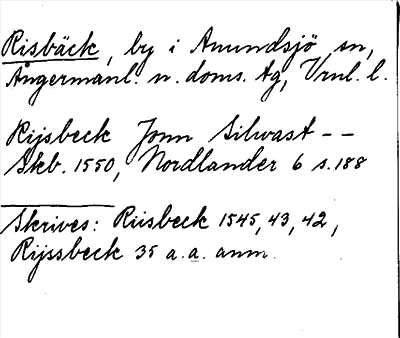 Risbäck, by i Anundsjö sn,
Ångermanl. n. doms. tg, Vrnl. l.
Rijsbeck Jonn Silwast - -
Skb. 1550, Nordlander 6 s. 188
Skrives: Riisbeck 1545, 43, 42,
Rijssbeck 35 a. a. anm.